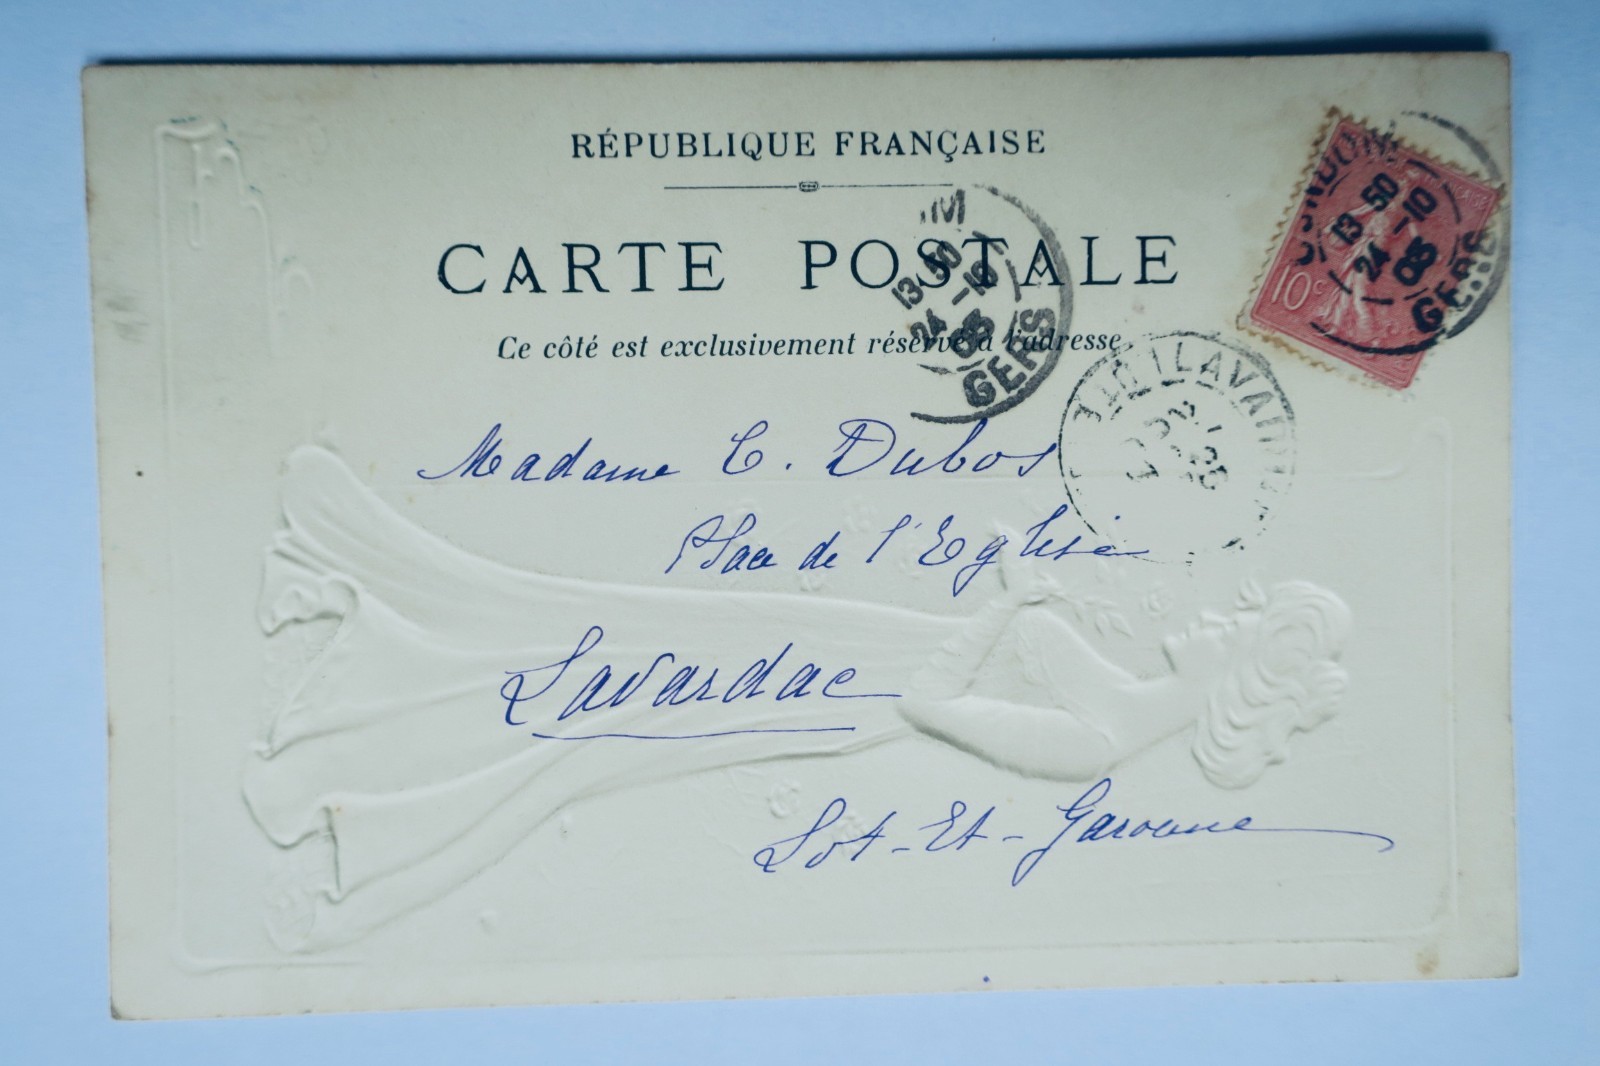 RÉPUBLIQUE FRANÇAISE
CARTE POSTALE
Ce côté est exclusivement réservé à l'adresse
10c
CONDOM
13 50
24 -10
03
GERS
OM
13 50
24 -10
03
GERS
LAVARDAC
Madame C. Dubos
Place de l'Eglise
Lavardac
Lot-Et-Garonne